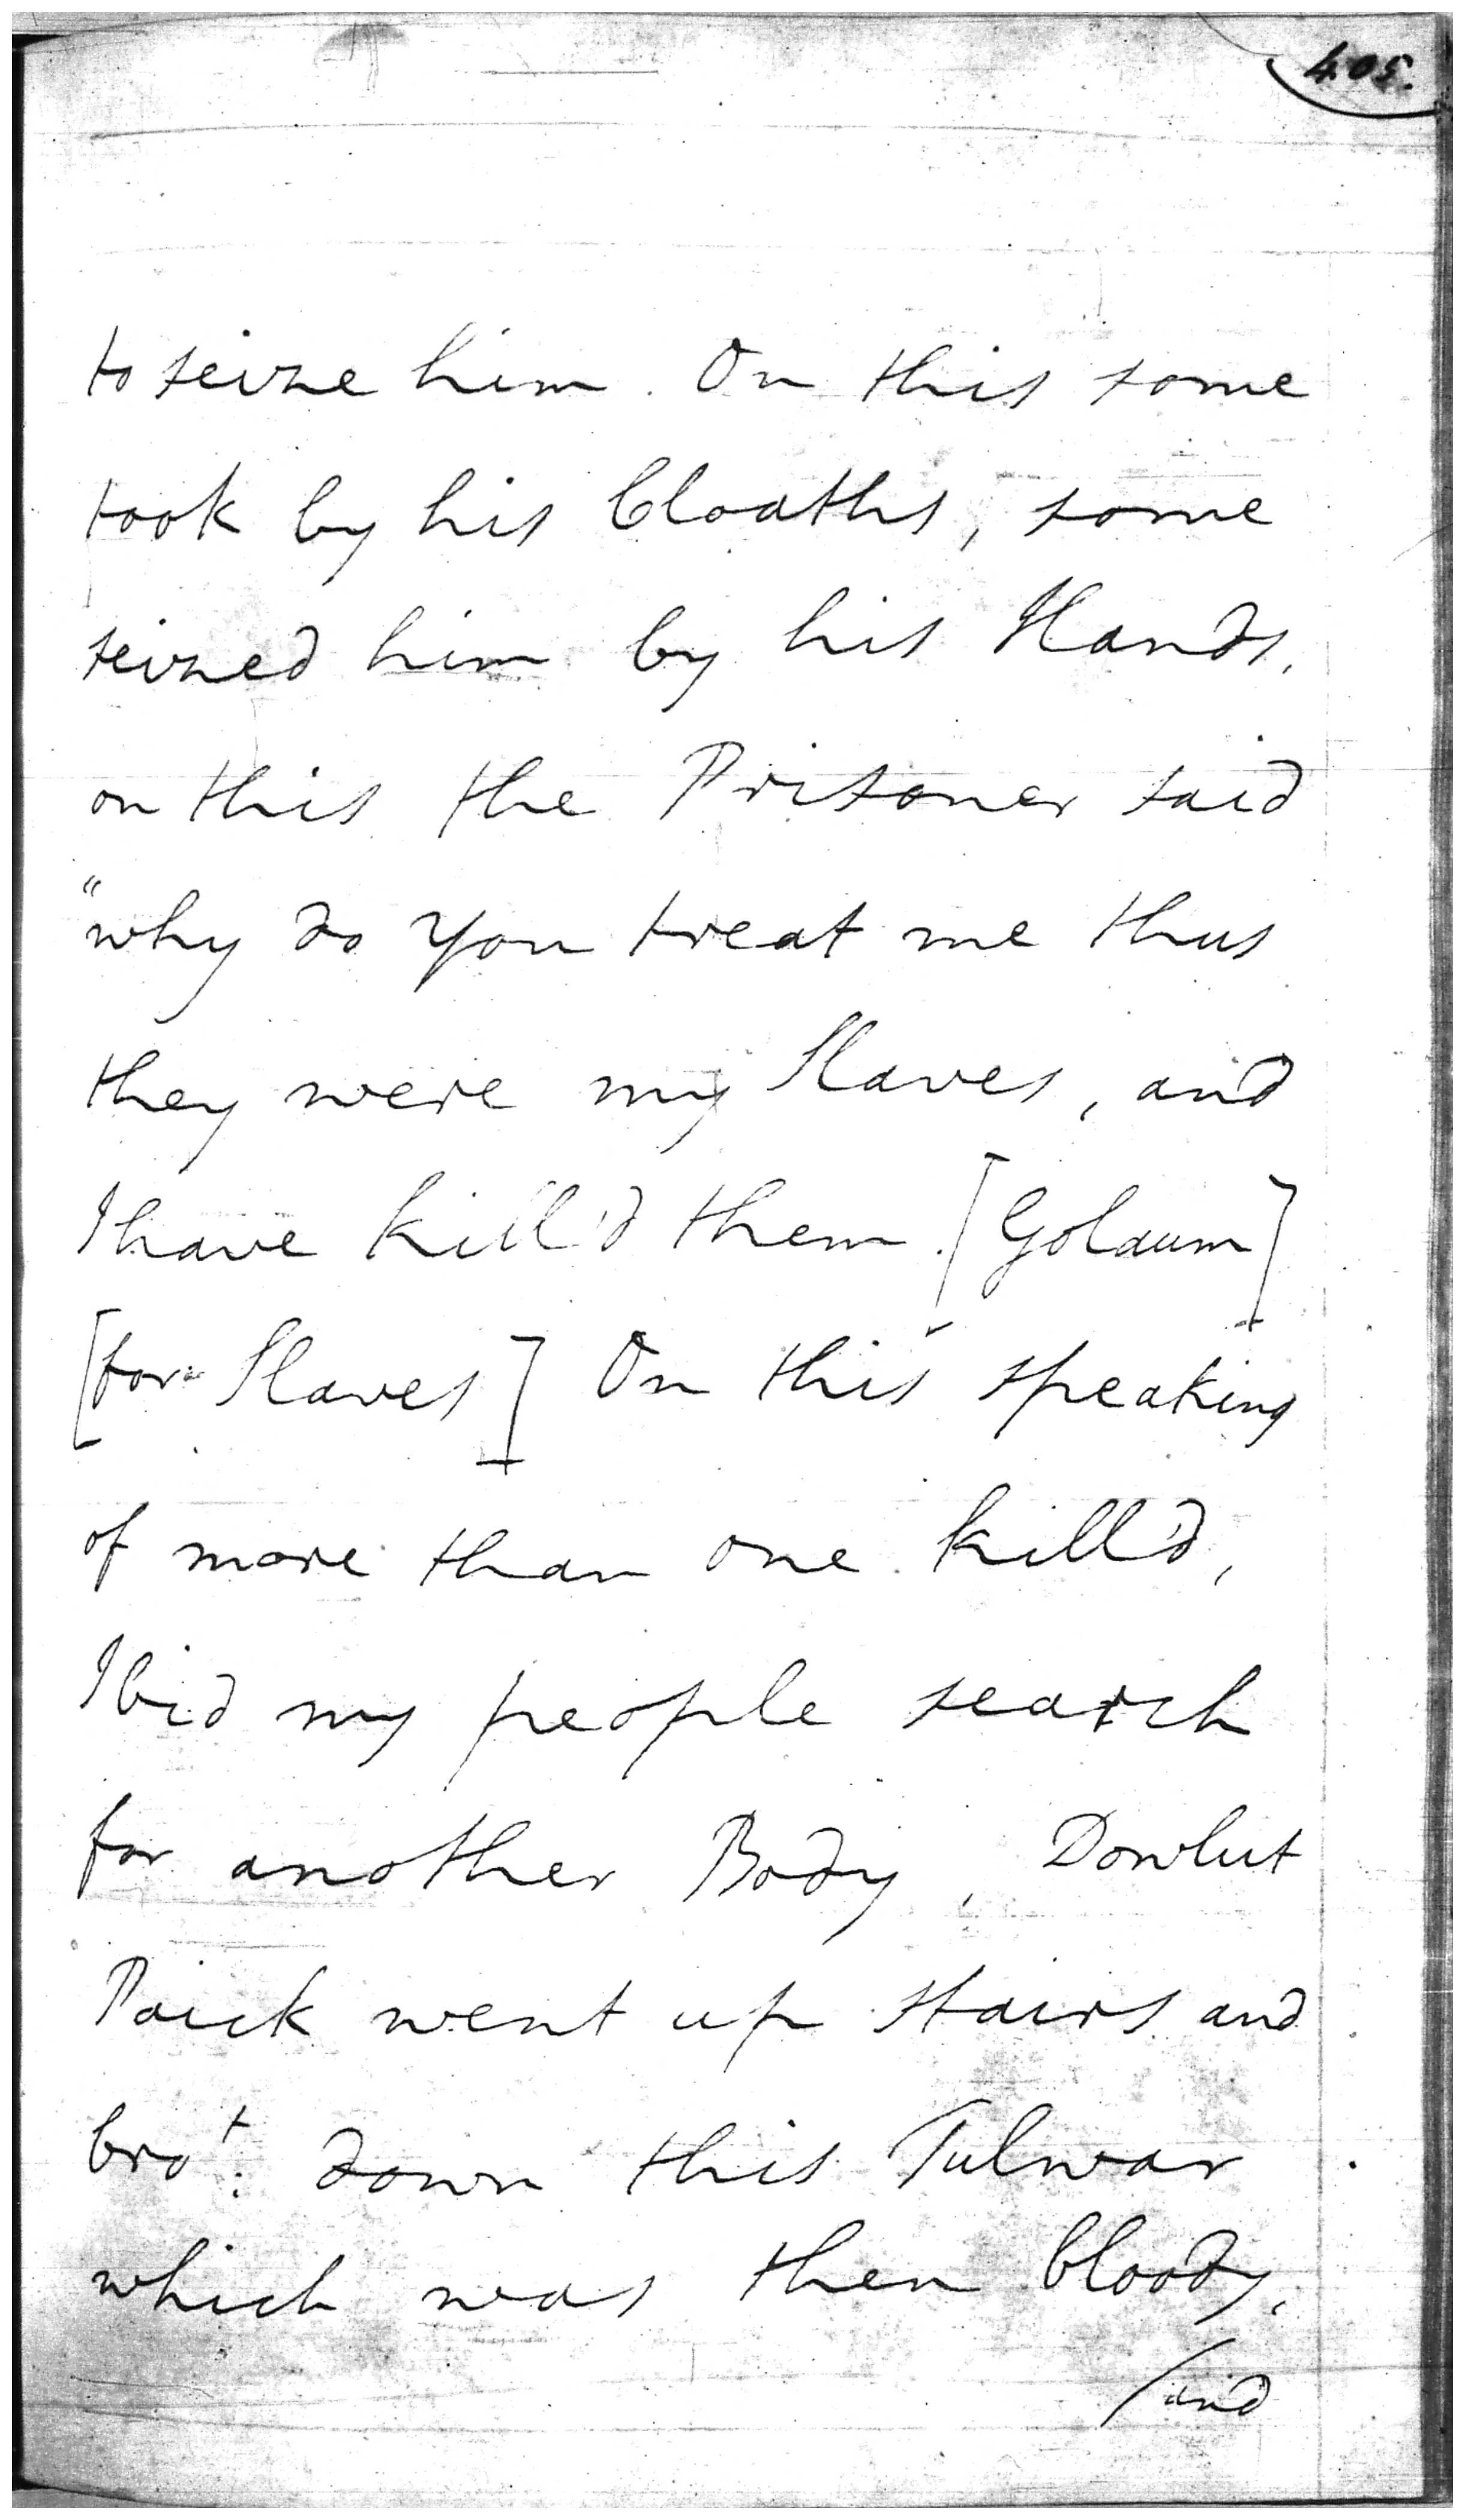 405.
to seize him. On this some
took by his Cloaths, some
seized him by his Hands,
on this the Prisoner said
"why do you treat me thus
they were my Slaves, and
I have kill'd them. [Golaum]
[for Slaves] On this speaking
of more than one kill'd,
I bid my people search
for another Body, Dowlut
Paick went up stairs and
bro.t down this Tulwar
which was then bloody,
/and